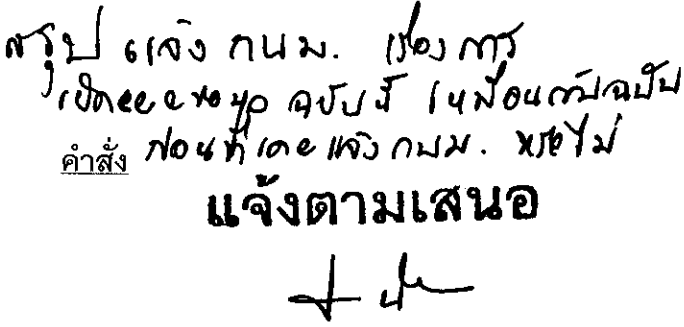 สรุป แจ้ง กนม. เรื่อง การ
ฉบับนี้ เหมือนกับฉบับ
คำสั่ง ก่อนที่เคยแจ้ง กบม. หรือไม่
แจ้งตามเสนอ